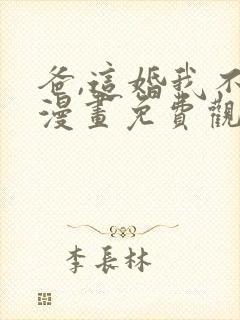 爸,這婚我不
漫畫免費觀
李長林